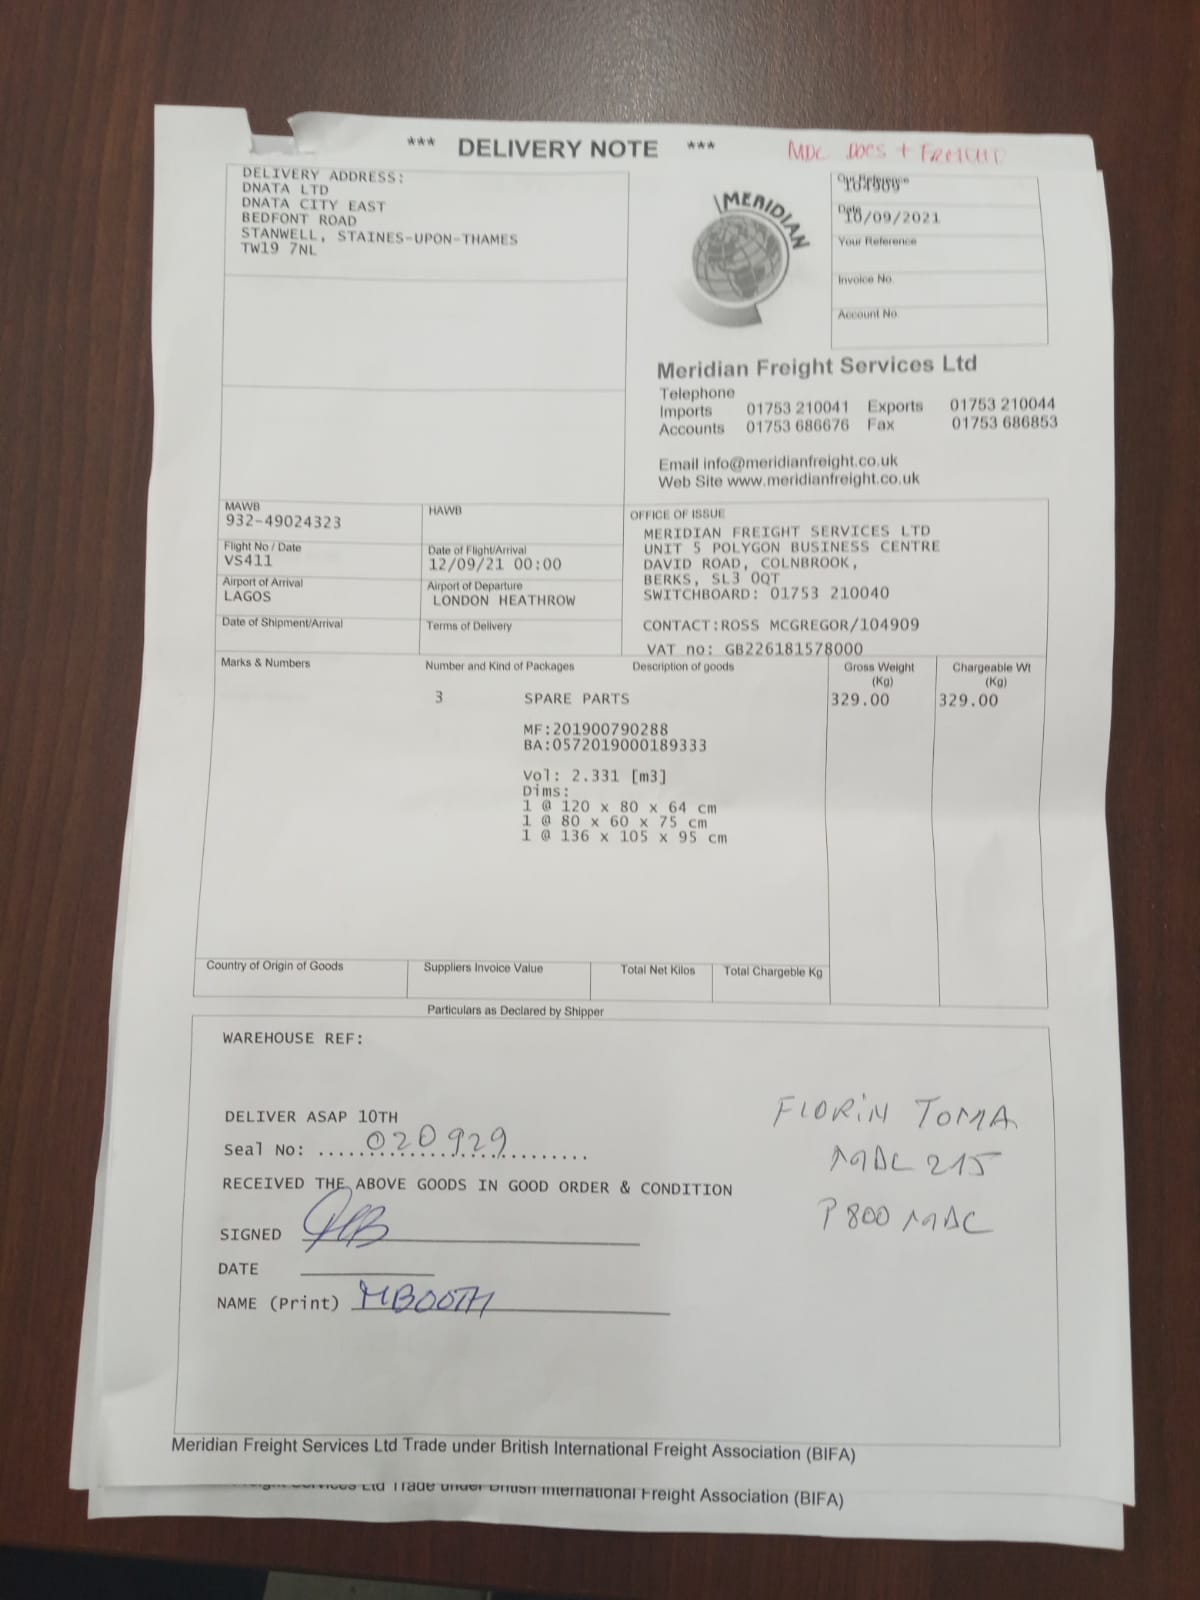 *** DELIVERY NOTE ***
MDC DOCS + FREIGHT
DELIVERY ADDRESS:
DNATA LTD
DNATA CITY EAST
BEDFONT ROAD
STANWELL, STAINES-UPON-THAMES
TW19 7NL
MERIDIAN
Our Reference
104909
Date
10/09/2021
Your Reference
Invoice No.
Account No
Meridian Freight Services Ltd
Telephone
Imports 01753 210041 Exports 01753 210044
Accounts 01753 686676 Fax 01753 686853
Email info@meridianfreight.co.uk
Web Site www.meridianfreight.co.uk
MAWB
932-49024323
HAWB
Flight No / Date
VS411
Date of Flight/Arrival
12/09/21 00:00
Airport of Arrival
LAGOS
Airport of Departure
LONDON HEATHROW
Date of Shipment/Arrival
Terms of Delivery
OFFICE OF ISSUE
MERIDIAN FREIGHT SERVICES LTD
UNIT 5 POLYGON BUSINESS CENTRE
DAVID ROAD, COLNBROOK,
BERKS, SL3 0QT
SWITCHBOARD: 01753 210040
CONTACT:ROSS MCGREGOR/104909
VAT no: GB226181578000
Marks & Numbers
Number and Kind of Packages
Description of goods
Gross Weight
(Kg)
Chargeable Wt
(Kg)
3 SPARE PARTS 329.00 329.00
MF:201900790288
BA:0572019000189333
Vol: 2.331 [m3]
Dims:
1 @ 120 x 80 x 64 cm
1 @ 80 x 60 x 75 cm
1 @ 136 x 105 x 95 cm
Country of Origin of Goods
Suppliers Invoice Value
Total Net Kilos
Total Chargeble Kg
Particulars as Declared by Shipper
WAREHOUSE REF:
DELIVER ASAP 10TH
Seal No: ......020929..........
RECEIVED THE ABOVE GOODS IN GOOD ORDER & CONDITION
SIGNED
DATE
NAME (Print) MBOOTH
FLORIN TOMA
MDC 215
P800 MDC
Meridian Freight Services Ltd Trade under British International Freight Association (BIFA)
Services Ltd Trade under British International Freight Association (BIFA)